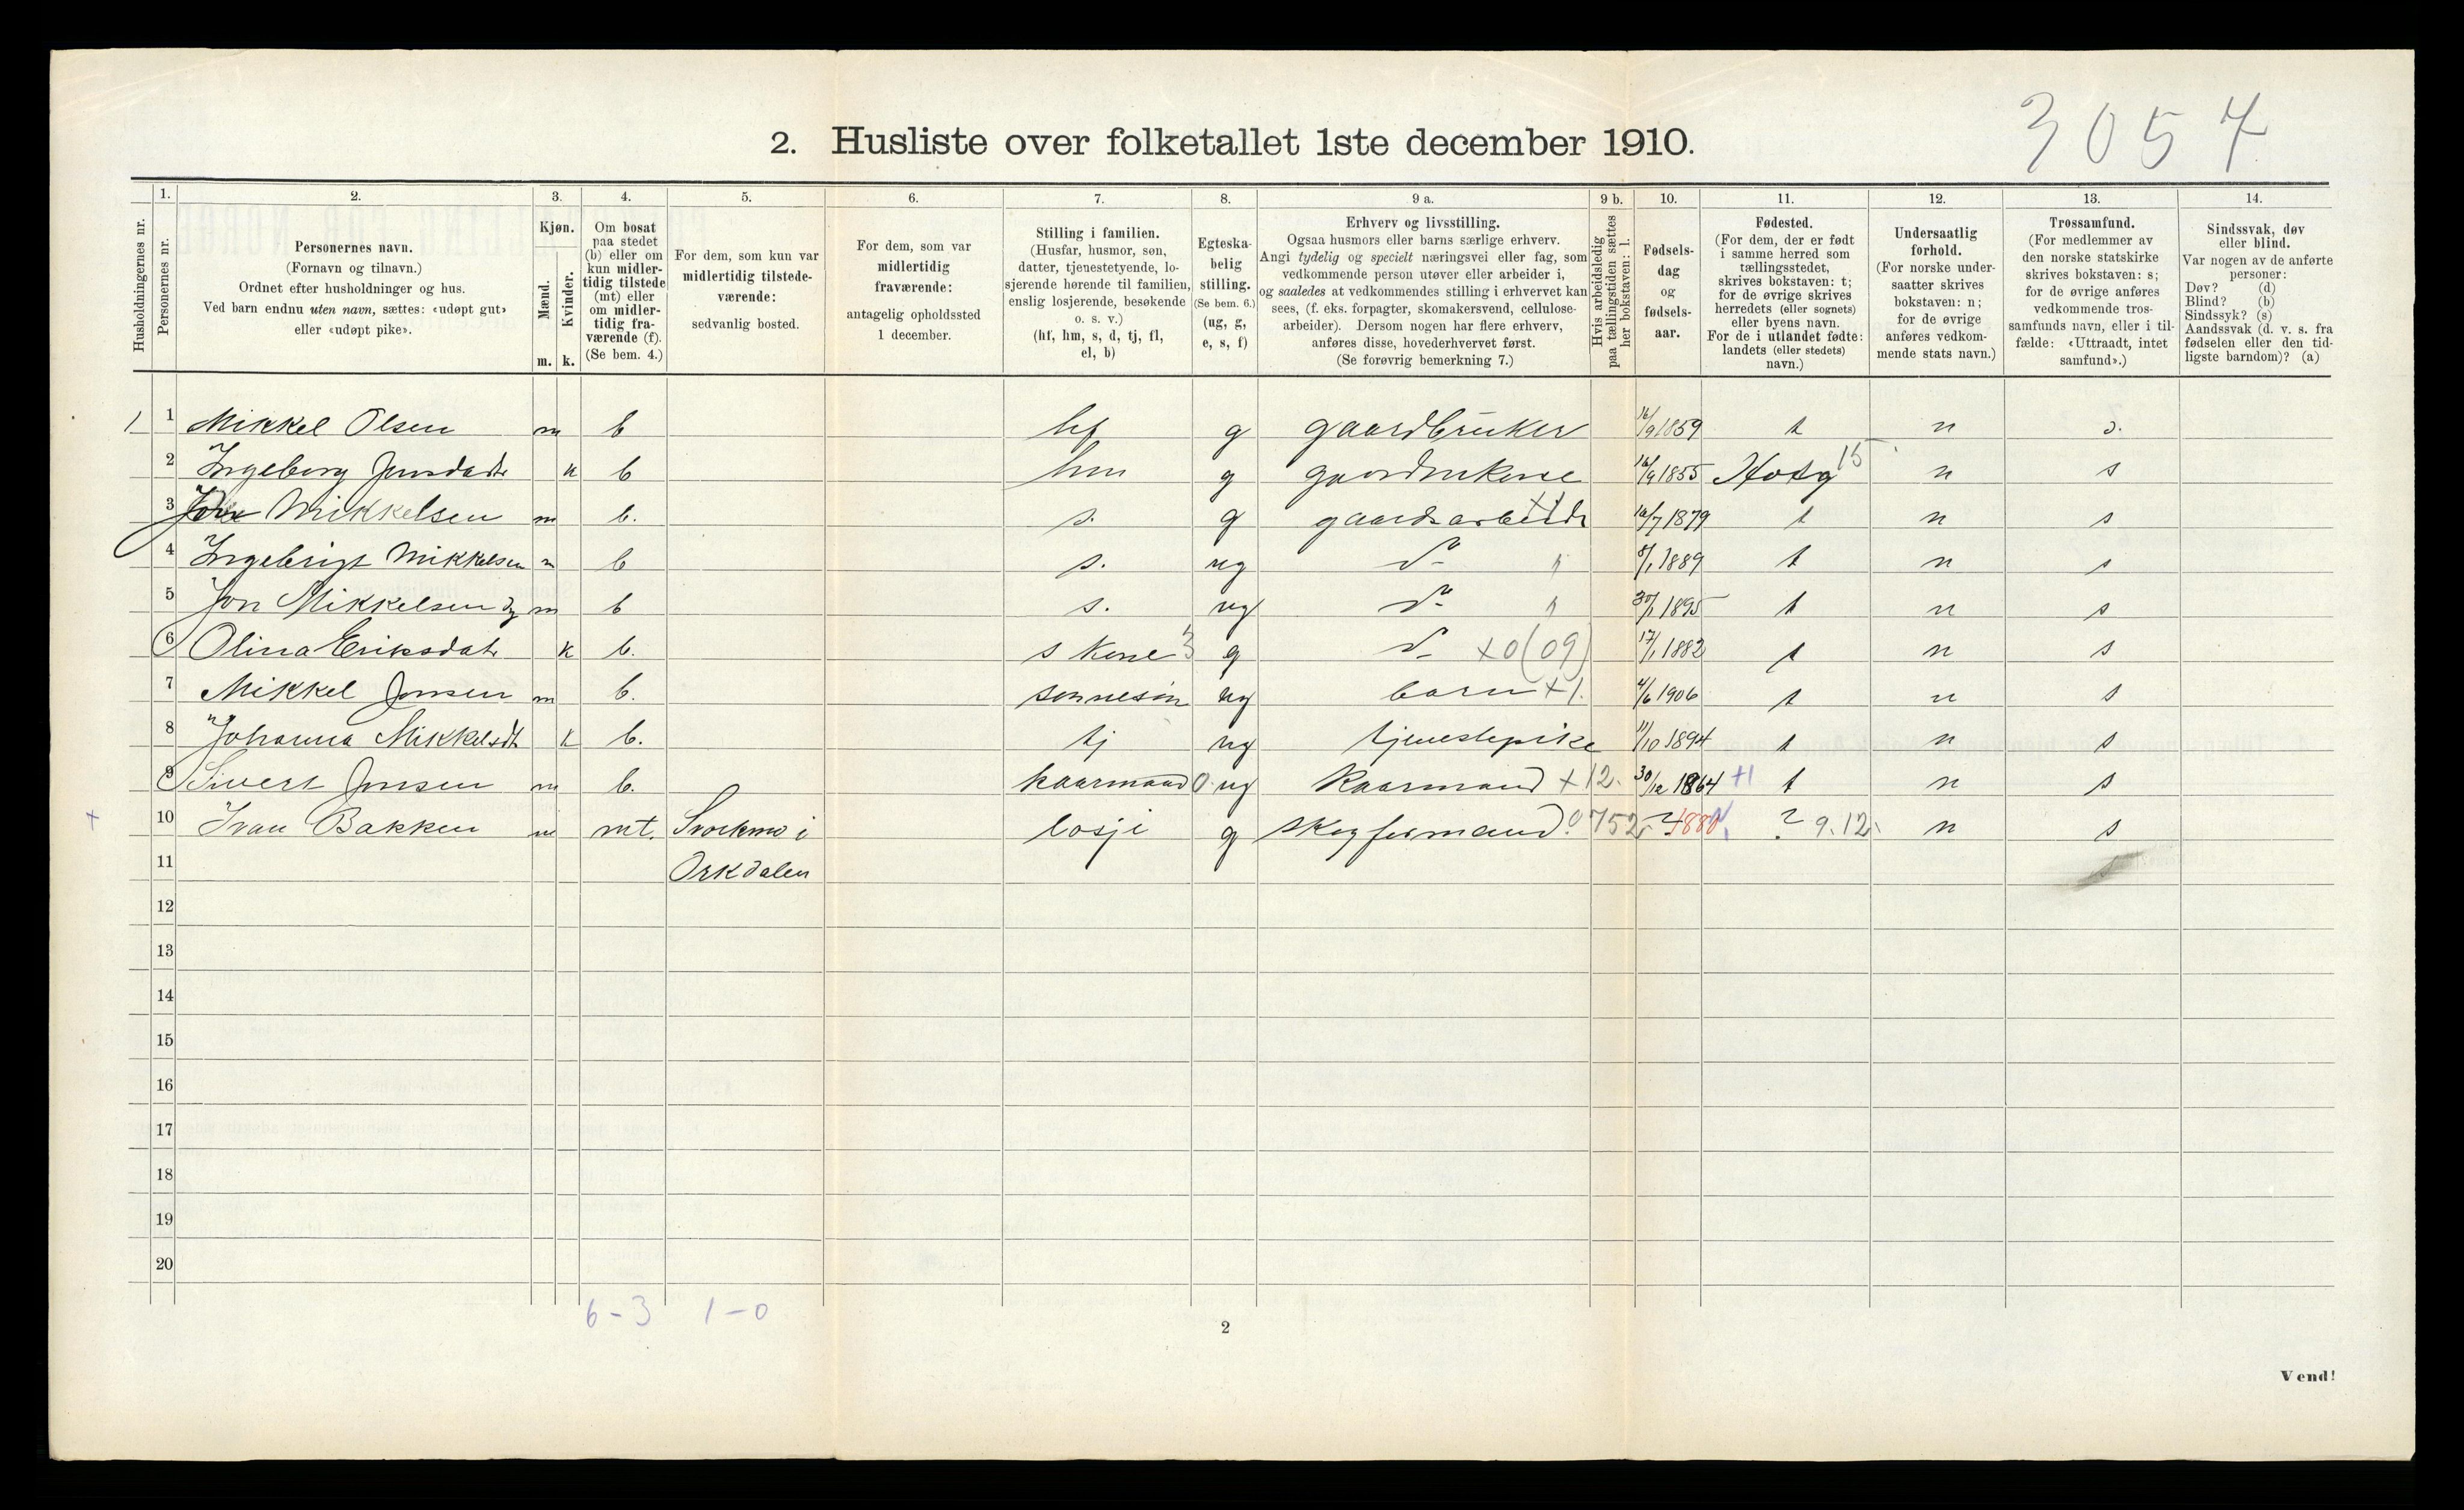 3057
2. Husliste over folketallet 1ste december 1910.
Husholdningernes nr.
1.
Personernes nr.
2.
Personernes navn.
(Fornavn og tilnavn.)
Ordnet efter husholdninger og hus.
Ved barn endnu uten navn, sættes: «udøpt gut»
eller «udøpt pike».
3.
Kjøn.
Mænd.
Kvinder.
m. k.
4.
Om bosat
paa stedet
(b) eller om
kun midler-
tidig tilstede
(mt) eller
om midler-
tidig fra-
værende (f).
(Se bem. 4.)
5.
For dem, som kun var
midlertidig tilstede-
værende:
sedvanlig bosted.
6.
For dem, som var
midlertidig
fraværende:
antagelig opholdssted
1 december.
7.
Stilling i familien.
(Husfar, husmor, søn,
datter, tjenestetyende, lo-
sjerende hørende til familien,
enslig losjerende, besøkende
o. s. v.)
(hf, hm, s, d, tj, fl,
el, b)
8.
Egteska-
belig
stilling.
(Se bem. 6.)
(ug, g,
e, s, f)
9 a.
Erhverv og livsstilling.
Ogsaa husmors eller barns særlige erhverv.
Angi tydelig og specielt næringsvei eller fag, som
vedkommende person utøver eller arbeider i,
og saaledes at vedkommendes stilling i erhvervet kan
sees, (f. eks. forpagter, skomakersvend, cellulose-
arbeider). Dersom nogen har flere erhverv,
anføres disse, hovederhvervet først.
(Se forøvrig bemerkning 7.)
9 b.
Hvis arbeidsledig
paa tællingstiden sættes
her bokstaven: l.
10.
Fødsels-
dag
og
fødsels-
aar.
11.
Fødested.
(For dem, der er født
i samme herred som
tællingsstedet,
skrives bokstaven: t;
for de øvrige skrives
herredets (eller sognets)
eller byens navn.
For de i utlandet fødte:
landets (eller stedets)
navn.)
12.
Undersaatlig
forhold.
(For norske under-
saatter skrives
bokstaven: n;
for de øvrige
anføres vedkom-
mende stats navn.)
13.
Trossamfund.
(For medlemmer av
den norske statskirke
skrives bokstaven: s;
for de øvrige anføres
vedkommende tros-
samfunds navn, eller i til-
fælde: «Uttraadt, intet
samfund».)
14.
Sindssvak, døv
eller blind.
Var nogen av de anførte
personer:
Døv? (d)
Blind? (b)
Sindssyk? (s)
Aandssvak (d. v. s. fra
fødselen eller den tid-
ligste barndom)? (a)
1 1 Mikkel Olsen m b hf g gaardbruker 16/9 1859 t n s.
2 Ingeborg Jonsdatr k b hm g 16/9 1855 15 n s
3 Mikkelsen m b. s. g gaardsarbeide 1879 t n s
4 Ingebrigt Mikkelsen m b s. ug do 8/1 1889 t n s
5 Jon Mikkelsen m b s. ug do 30/1 1895 t n s
6 Olina Eriksdatr k b. s kone 3 g do x0(09) 17/1 1882 t n s
7 Mikkel Jonsen m b. sønnesøn ug barn +1. 4/6 1906 t n s
8 Johanna Mikkelsdt k b. tj ug tjenestepike 11/10 1894 t n s
9 Sivert Jonsen m b. kaarmand 0 ug Kaarmand +12. 30/12 1864 +1 t n s
+ 10 Ivar Bakken m mt. Svorkmo i losji g skogformand 0752 ? 1880 ? 9.12. n s
11 Orkdalen
12
13
14
15
16
17
18
19
20
6-3 1-0
2
Vend!